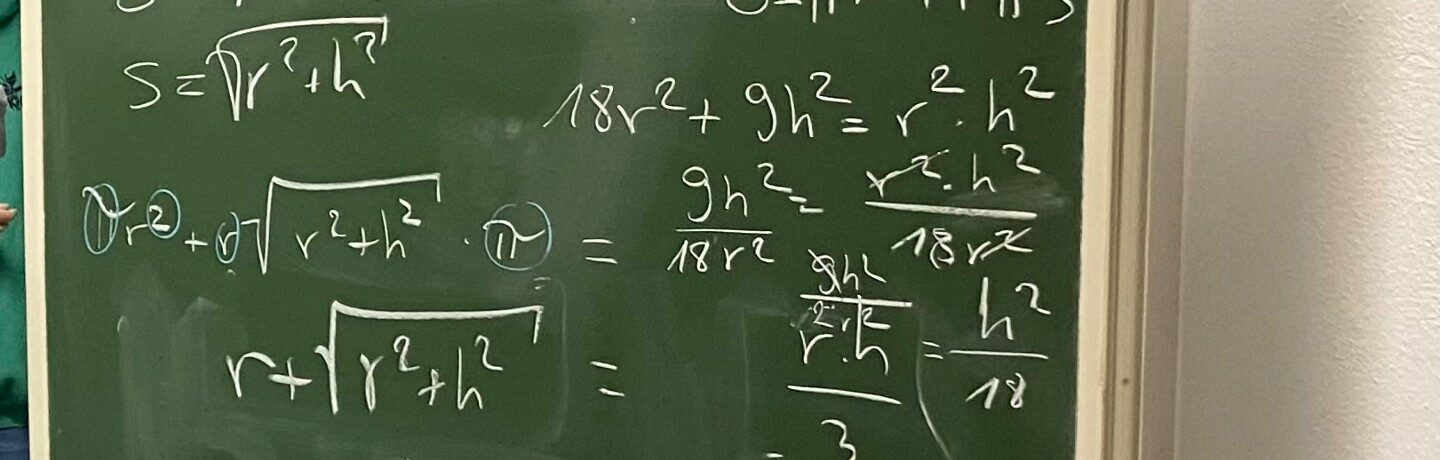 s = √r²+h²
18r² + 9h² = r² · h²
πr² + r√r²+h² · π =
9h²/18r² = r²·h²/18r²
r+√r²+h² =
9h²
r²·h² = h²/18
3